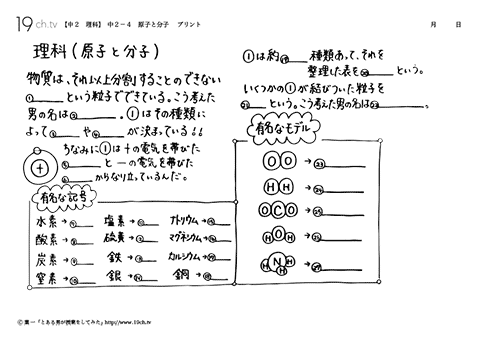 19ch.tv 【中2 理科】 中2-4 原子と分子 プリント 月 日
理科(原子と分子)
物質は、それ以上分割することのできない
①______という粒子でできている。こう考えた
男の名は②______。①はその種類に
よって③____や④____が決まっている！！
ちなみに①は＋の電気を帯びた
⑤____と－の電気を帯びた
⑥____からなり立っているんだ。
＋
有名な記号
水素→⑦____ 塩素→⑪____ ナトリウム→⑮____
酸素→⑧____ 硫黄→⑫____ マグネシウム→⑯____
炭素→⑨____ 鉄→⑬____ カルシウム→⑰____
窒素→⑩____ 銀→⑭____ 銅→⑱____
①は約⑲____種類あって、それを
整理した表を⑳______という。
いくつかの①が結びついた粒子を
㉑____という。こう考えた男の名は㉒________。
有名なモデル
OO→㉓______
HH→㉔______
OCO→㉕______
HOH→㉖______
HNHH→㉗______
Ⓒ 葉一「とある男が授業をしてみた」http://www.19ch.tv